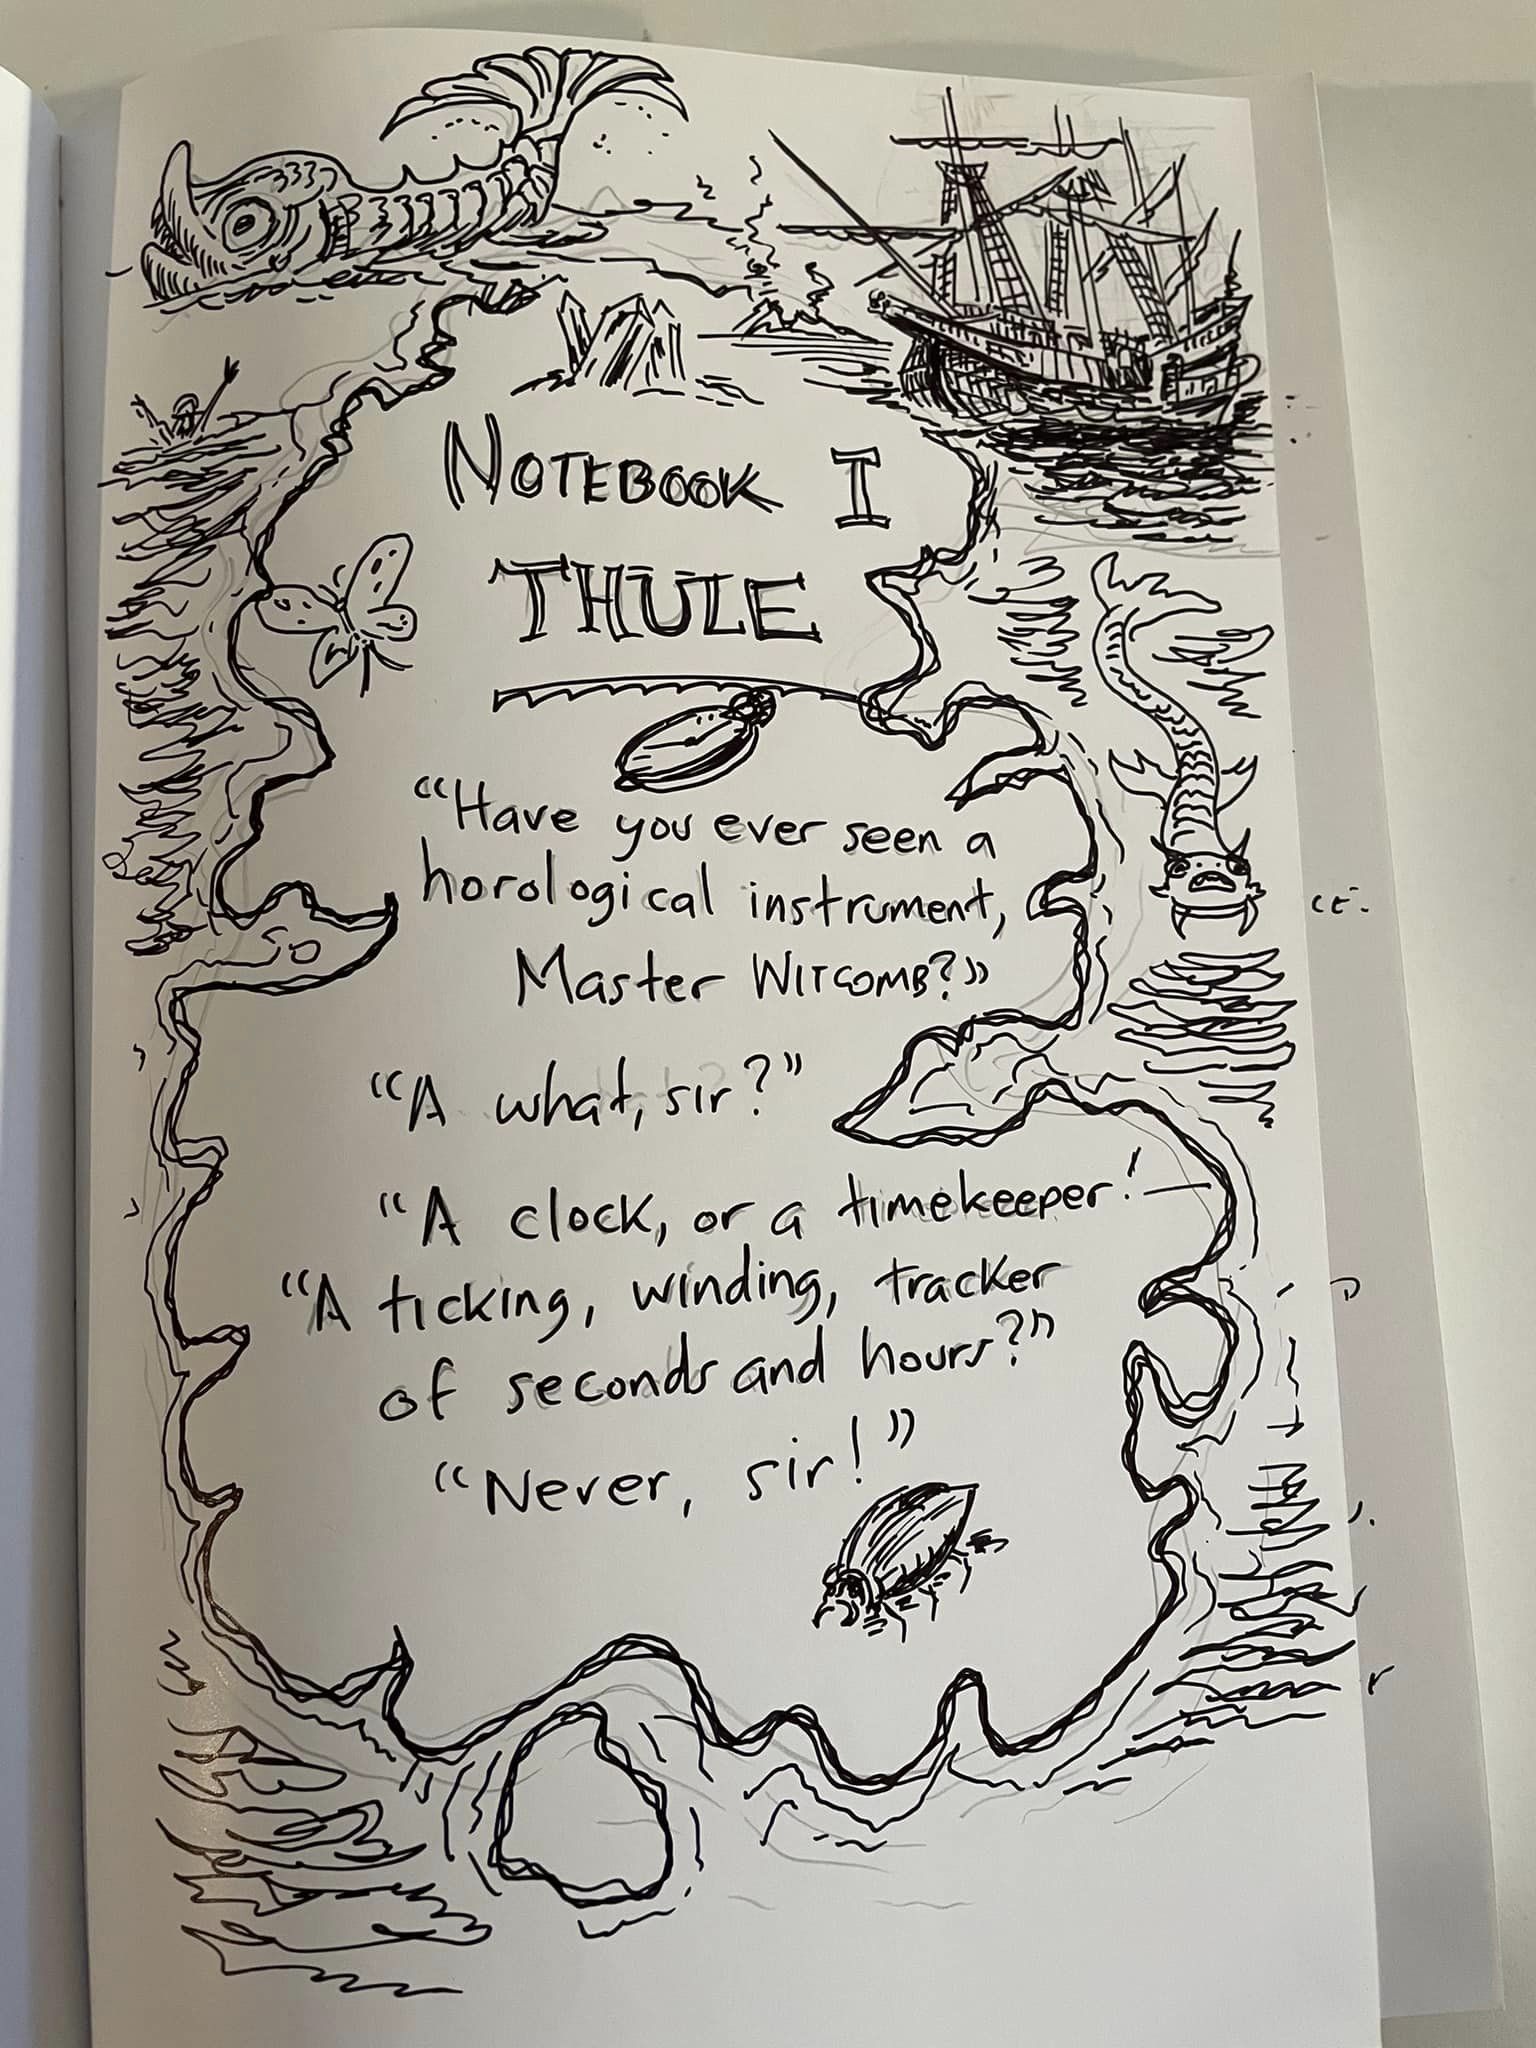 NOTEBOOK I
THULE
"Have you ever seen a
horological instrument,
Master WITCOMB?"
"A what, sir?"
"A clock, or a timekeeper! —
"A ticking, winding, tracker
of seconds and hours?"
"Never, sir!"